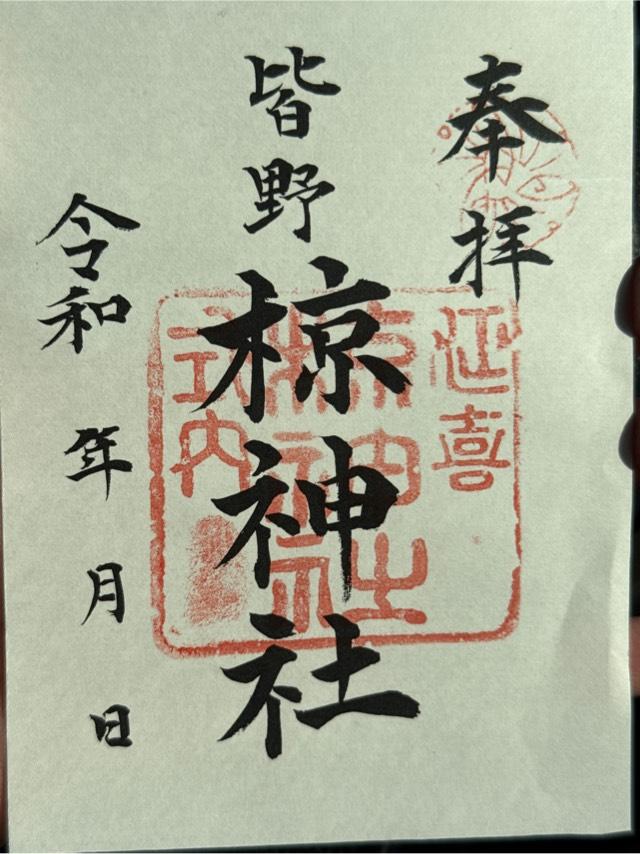 奉拝
皆野
椋神社
令和 年 月 日
延喜
式内